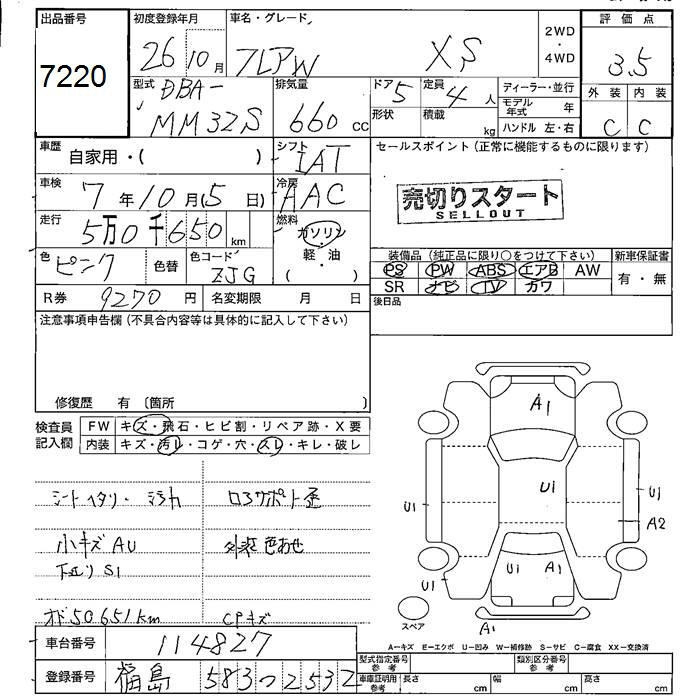 出品番号 初度登録年月 車名・グレード 2WD ・ 4WD 評価点
7220 26 10月 フレアW XS 3.5
型式 DBA- MM32S 排気量 660 cc ドア 5 定員 4人 ディーラー・並行 外装 内装
形状 積載 kg モデル年式 年 C C
ハンドル 左・右
車歴 自家用・( ) シフト IAT セールスポイント(正常に機能するものに限ります)
車検 7年10月(5日) 冷房 AAC 売切りスタート
SELLOUT
走行 5万0千650km 燃料 ガソリン 軽・油 ( )
色 ピンク 色替 色コード ZJG 装備品(純正品に限り○をつけて下さい) 新車保証書
PS PW ABS エアB AW 有・無
SR ナビ TV カワ
R券 9270円 名変期限 月 日 後日品
注意事項申告欄(不具合内容等は具体的に記入して下さい)
修復歴 有〔箇所
検査員記入欄 FW キズ・飛石・ヒビ割・リペア跡・X要
内装 キズ・汚レ・コゲ・穴・スレ・キレ・破レ
シートヘタリ・ コアサポート歪
小キズAU 外装色あせ
下廻りS1
オド50651km CPキズ
A1
U1
U1 U1 A2
U1 U1 A1
スペア A1
A-キズ E-エクボ U-凹み W-補修跡 S-サビ C-腐食 XX-交換済
車台番号 114827
型式指定番号 参考 類別区分番号 参考
登録番号 福島 583 つ 2532
車庫証明用 参考 長さ cm 幅 cm 高さ cm